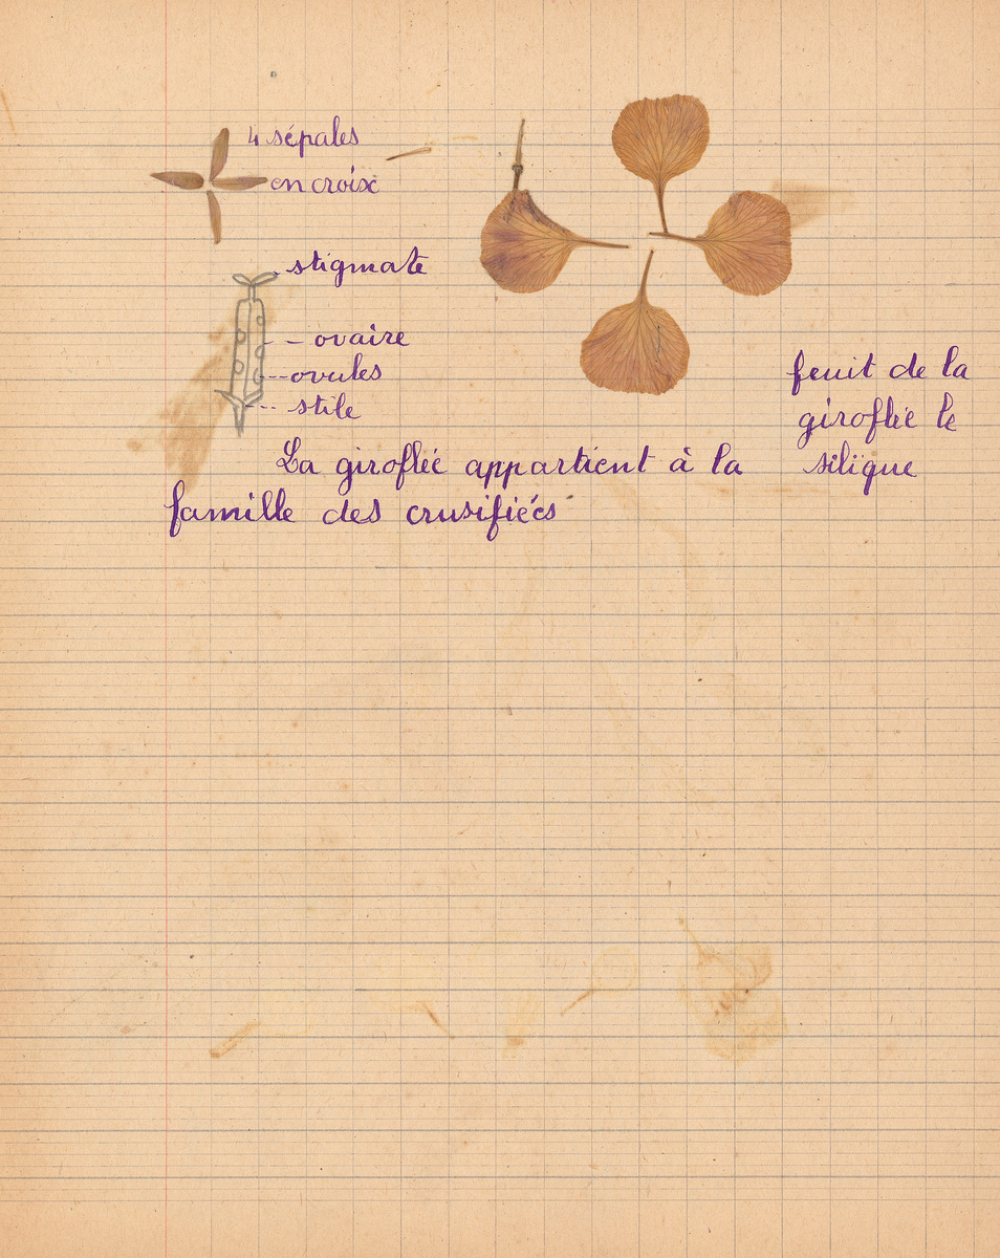 4 sépales
en croix
stigmate
ovaire
ovules
stile
feuit de la
giroflée le
silique
La giroflée appartient à la
famille des crusifiées